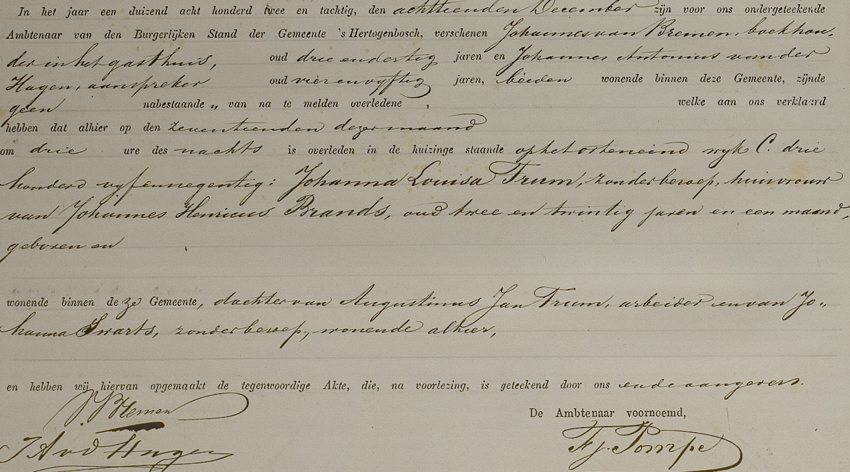 In het jaar een duizend acht honderd twee en tachtig, den achttienden December zijn voor ons ondergeteekende
Ambtenaar van den Burgerlijken Stand der Gemeente 's Hertogenbosch, verschenen Johannes van Bremen, boekhou-
der in het gasthuis, oud drie en dertig jaren en Johannes Antonius van der
Hagen, aanspreker oud vier en vyftig jaren, beiden wonende binnen deze Gemeente, zijnde
geen nabestaande „ van na te melden overledene , welke aan ons verklaard
hebben dat alhier op den zeventienden dezer maand
om drie ure des nachts is overleden in de huizinge staande op het orteneind wyk C. drie
honderd vyfennegentig: Johanna Louisa Trum, zonder beroep, huisvrouw
van Johannes Henricus Brands, oud twee en twintig jaren en een maand,
geboren en
wonende binnen deze Gemeente, dochter van Augustinus Jan Trum, arbeider en van Jo-
hanna Swarts, zonder beroep, wonende alhier,
en hebben wij hiervan opgemaakt de tegenwoordige Akte, die, na voorlezing, is geteekend door ons en de aangevers.
De Ambtenaar voornoemd,
J A v d Hagen
F. J. Pompe